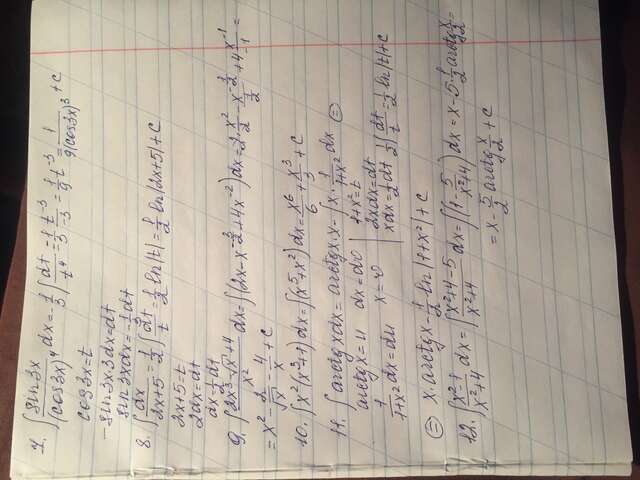 7. ∫ sin3x/(cos3x)⁴ dx = -1/3 ∫ dt/t⁴ = -1/3 t⁻³/-3 = 1/9 t⁻³ = 1/9(cos3x)³ + c
cos3x=t
-sin3x·3dx=dt
sin3xdx=-1/3dt
8. ∫ dx/2x+5 = 1/2 ∫ dt/t = 1/2 ln|t| = 1/2 ln|2x+5| + c
2x+5=t
2dx=dt
dx=1/2 dt
9. ∫ 2x³-√x+4/x² dx = ∫(2x-x^-3/2+4x⁻²)dx = 2·x²/2 - x^-1/2/-1/2 + 4x⁻¹/-1 =
= x² - 2/√x - 4/x + c
10. ∫x²(x³+1)dx = ∫(x⁵+x²)dx = x⁶/6 + x³/3 + c
11. ∫arctgxdx = arctgx·x - ∫x·1/1+x² dx ⊜
arctgx=u dx=dv | 1+x²=t
1/1+x² dx=du x=v | 2xdx=dt
xdx=1/2dt 1/2∫dt/t = 1/2 ln|t|+c
⊜ x·arctgx - 1/2 ln|1+x²| + c
12. ∫ x²-1/x²+4 dx = ∫ x²+4-5/x²+4 dx = ∫(1-5/x²+4)dx = x-5·1/2 arctg x/2 =
= x - 5/2 arctg x/2 + c